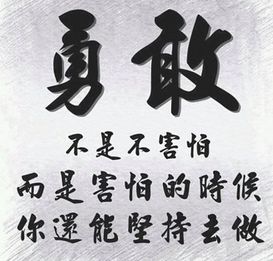 勇敢
不是不害怕
而是害怕的時候
你還能堅持去做